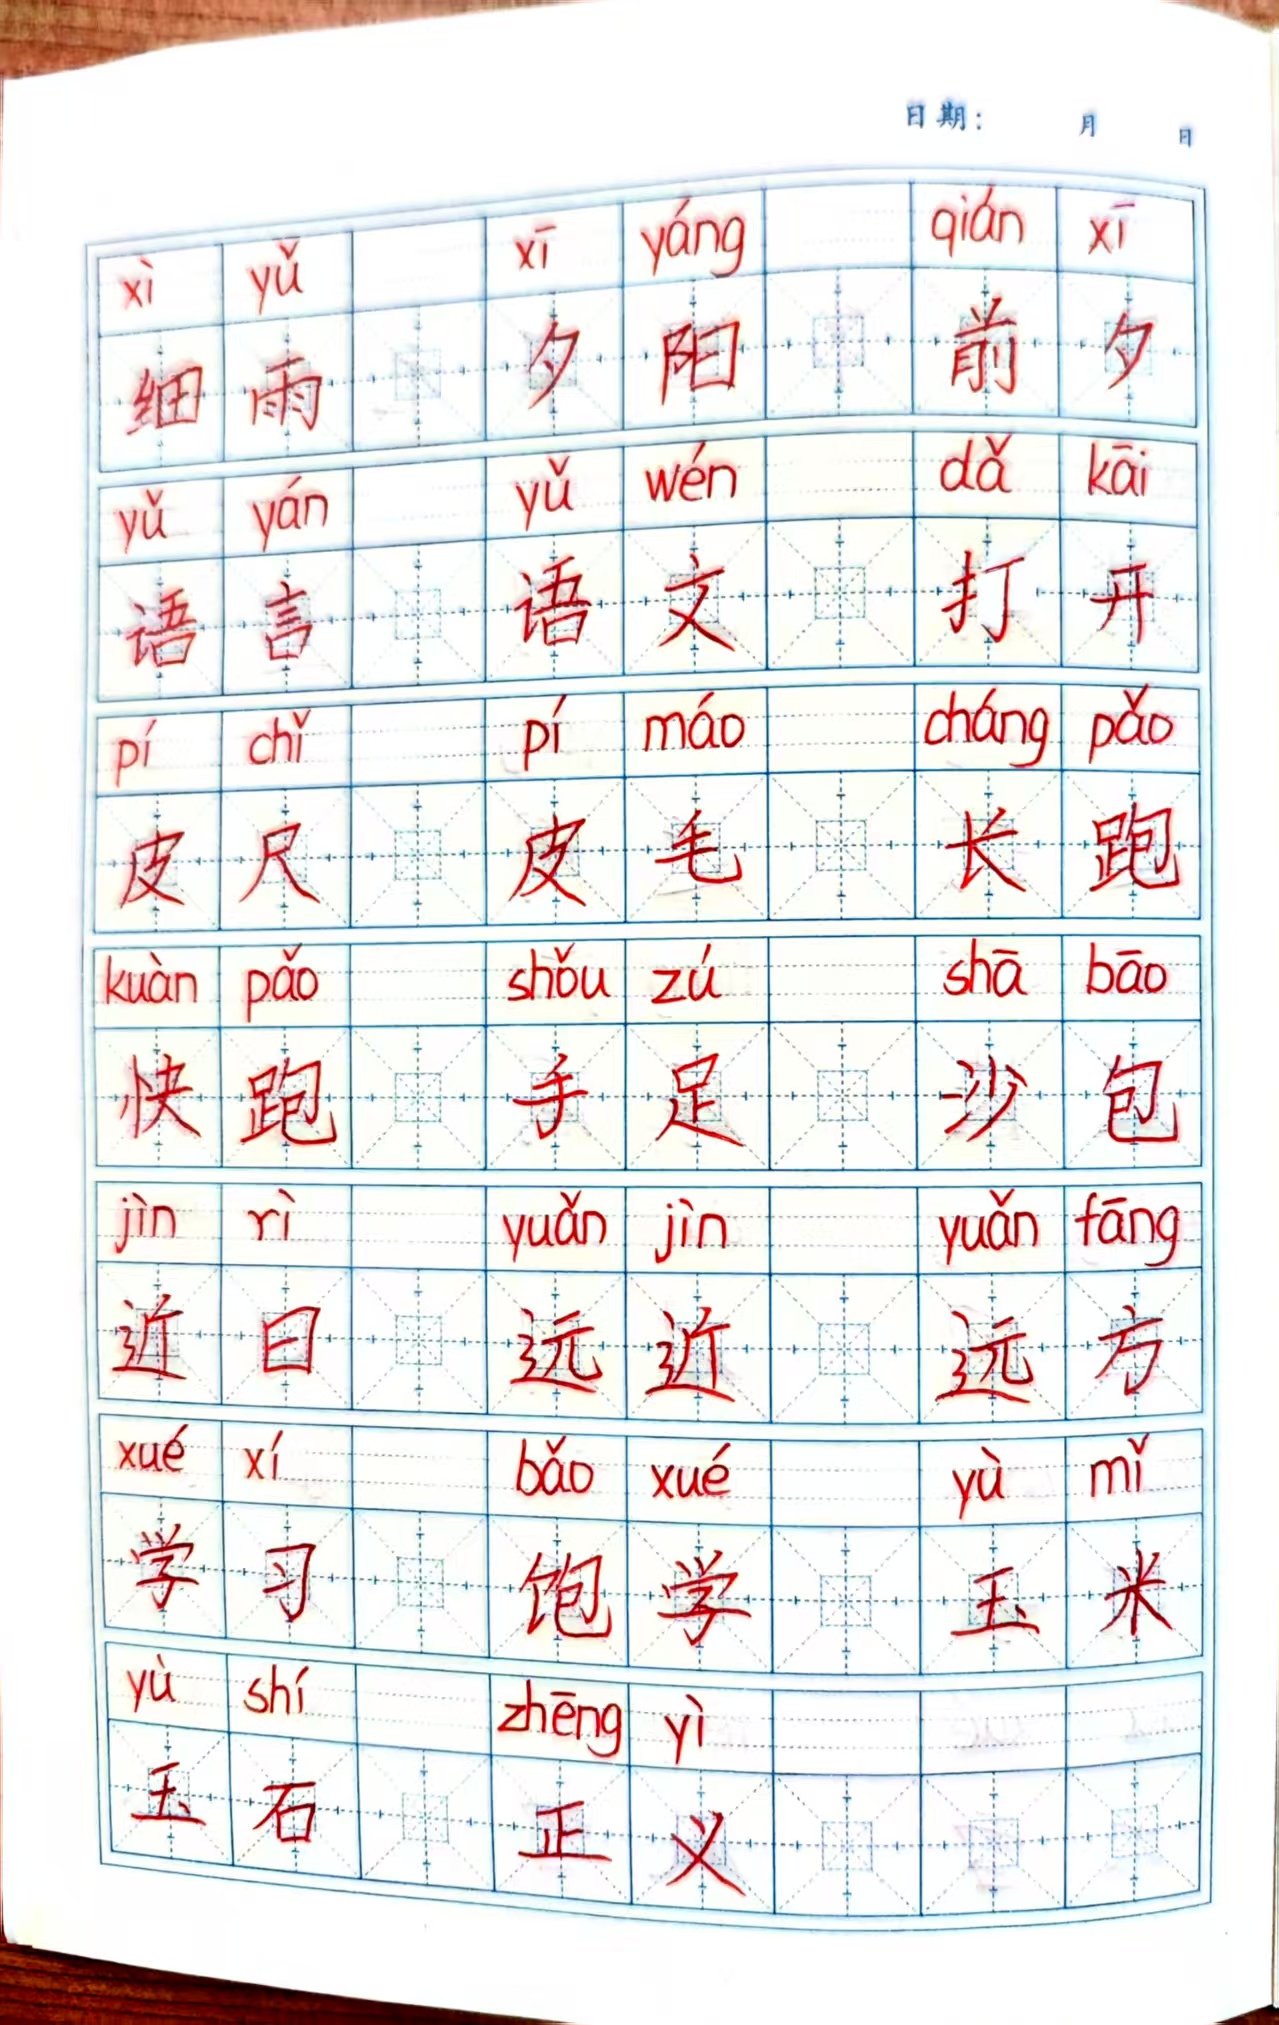 日期： 月 日
xì yǔ xī yáng qián xī
细雨 夕阳 前夕
yǔ yán yǔ wén dǎ kāi
语言 语文 打开
pí chǐ pí máo cháng pǎo
皮尺 皮毛 长跑
kuàn pǎo shǒu zú shā bāo
快跑 手足 沙包
jìn rì yuǎn jìn yuǎn fāng
近日 远近 远方
xué xí bǎo xué yù mǐ
学习 饱学 玉米
yù shí zhēng yì
玉石 正义